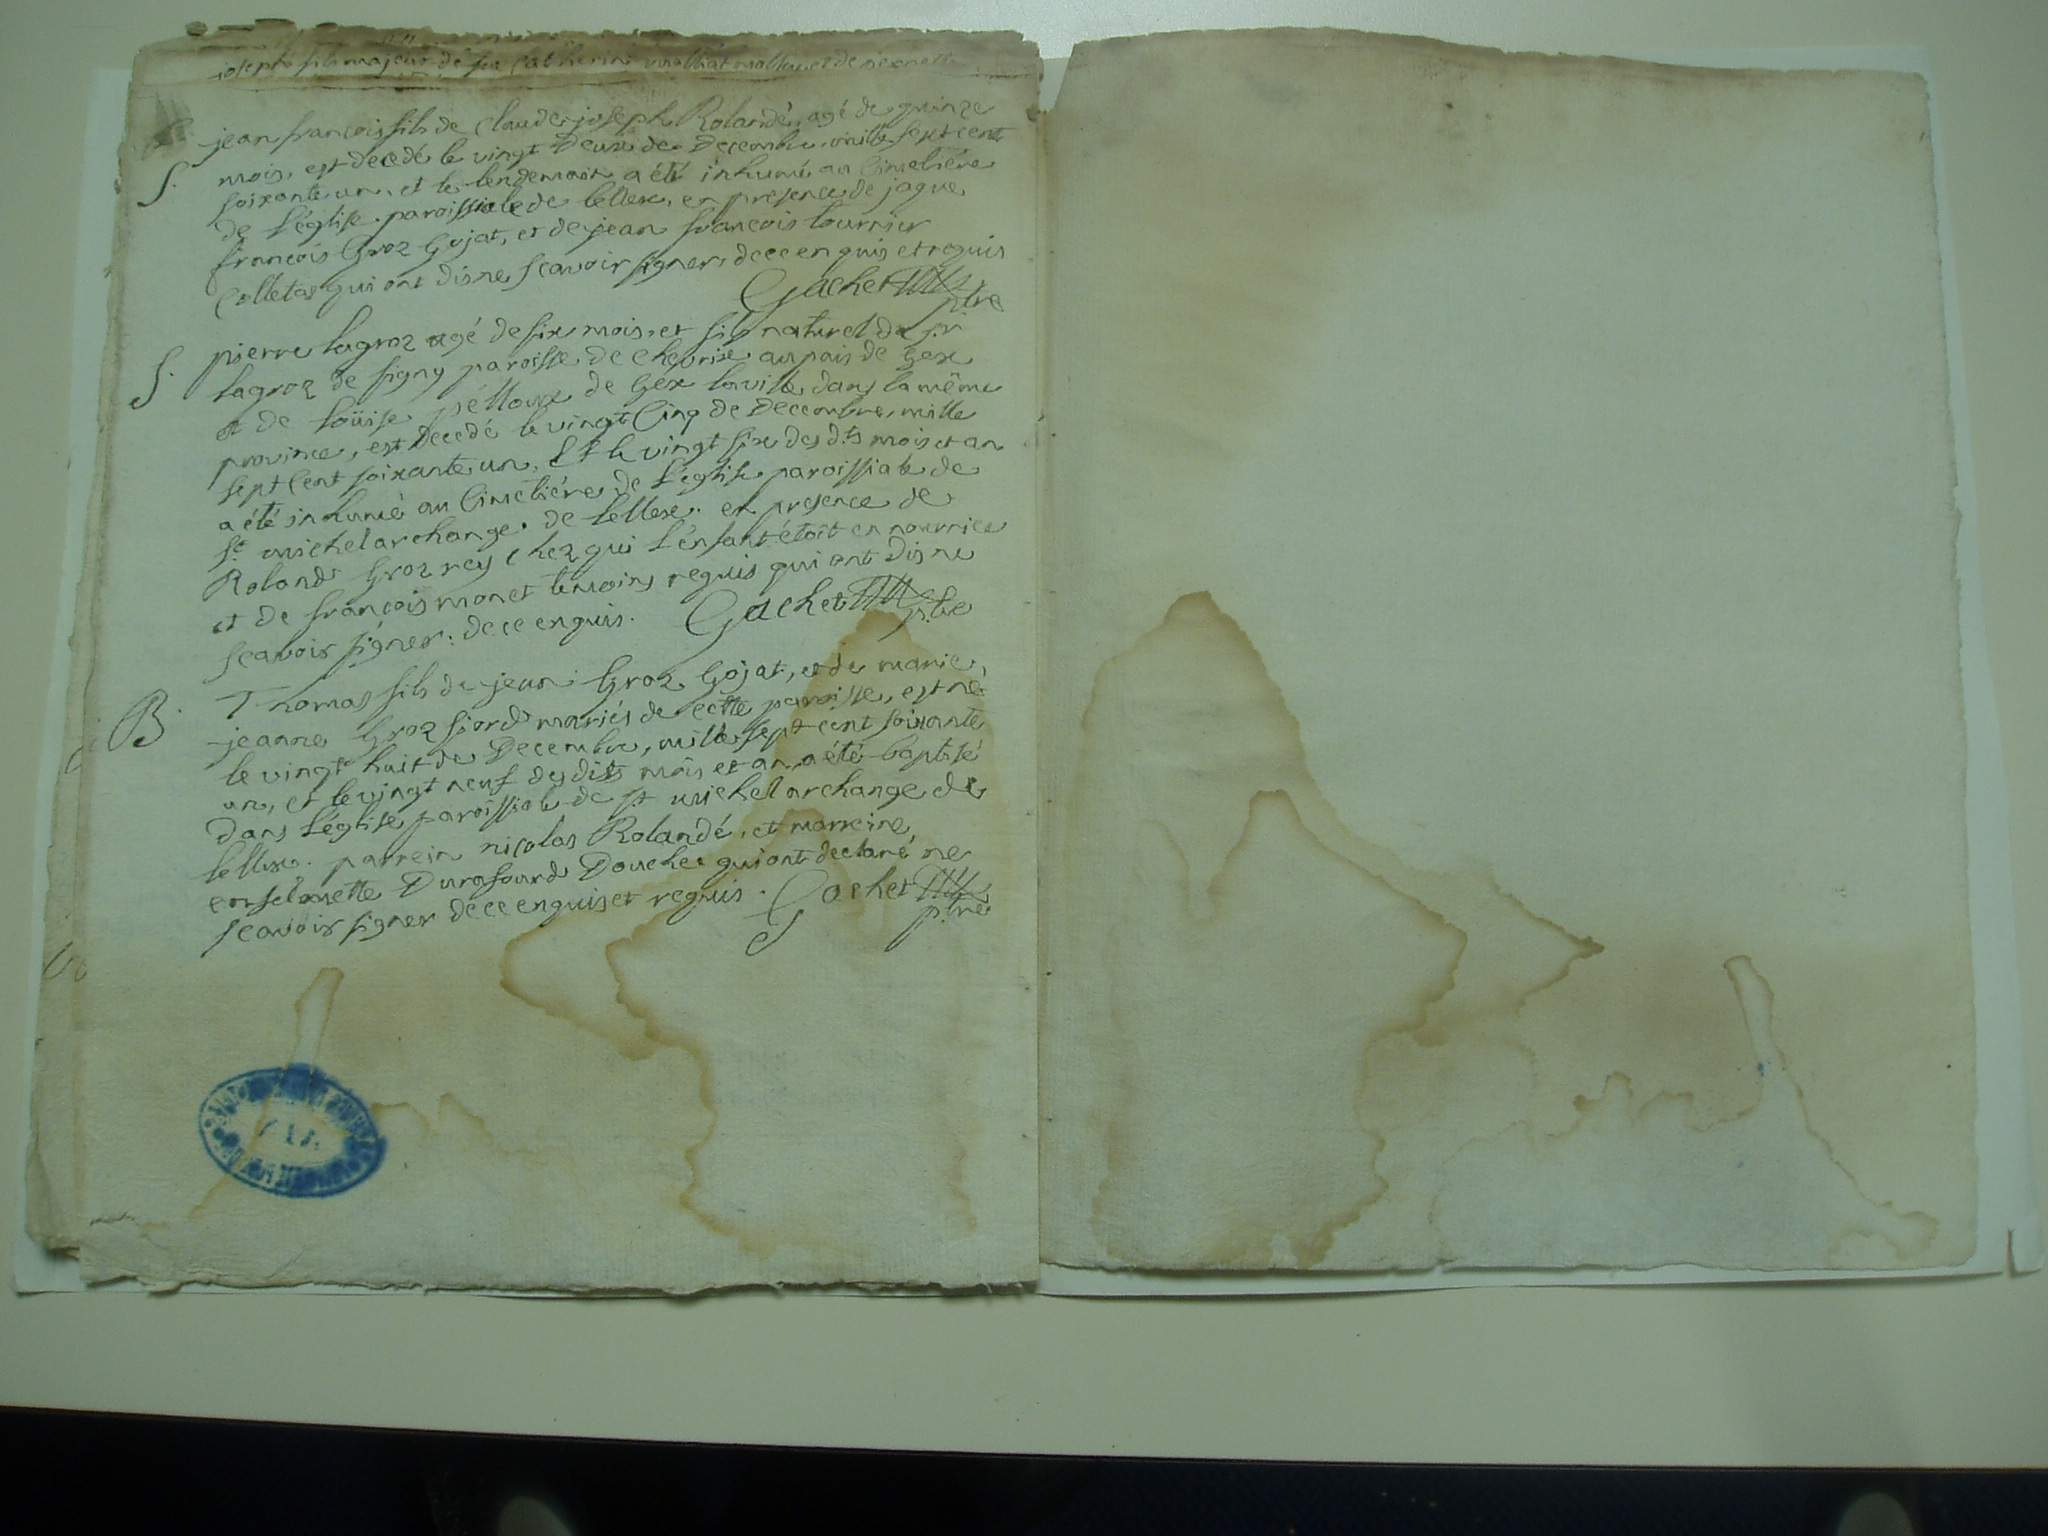 joseph fils majeur de feu Catherine
jean françois fils de Claude joseph Rolandé, agé de quinze
mois, est decedé le vingt Deux de Decembre, mille sept cent
S.
soixante un, et le lendemain a été inhumé au Cimetiére
de L'église paroissiale de Lellex, en presence de jaque
françois Groz Gojat, et de jean françois tournier
Colletas qui ont dis ne scavoir signer, de ce enquis et requis
Gachet
ptre
pierre Lagroz agé de six mois, et fils naturel de
S.
Lagroz de signy paroisse de Chevrise au païs de Gex
et de Loüise pélloux de Géx la ville, dans la même
province, est decedé le vingt Cinq de Decembre, mille
sept Cent soixante un, Et le vingt six des dts mois et an
a été inhumé au Cimetiére de L'église paroissiale de
St. michel archange de Lellex. en presence de
Roland Groz rey chez qui L'enfant étoit en nourrice
et de françois monet temoins requis qui ont dis ne
scavoir signer. de ce enquis. Gachet ptre
Thomas fils de jean Groz Gojat, et de marie
B.
jeanne Groz fiord mariés de cette paroisse, est né
le vingt huit de Decembre, mille sept cent soixante
un, et le vingt neuf des dits mois et an a été baptisé
dans L'église paroissiale de st michel archange de
Lellex. parrein nicolas Rolandé, et marreine,
Durafourd Douchet qui ont declaré ne
scavoir signer de ce enquis et requis. Gachet
ptre